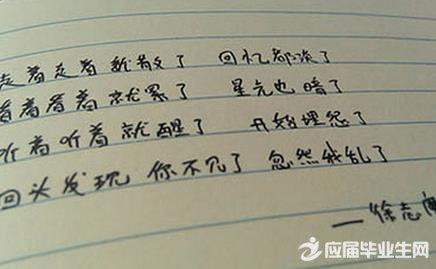 走着走着就散了 回忆都淡了
看着看着就累了 星光也暗了
听着听着就醒了 开始埋怨了
回头发现 你不见了 忽然我乱了
—徐志摩
应届毕业生网